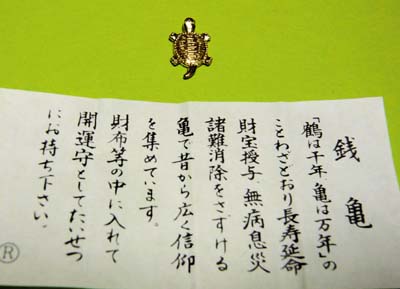 銭亀
「鶴は千年、亀は万年」の
ことわざとおり長寿延命
財宝授与、無病息災
諸難消除をさずける
亀で昔から広く信仰
を集めています。
財布等の中に入れて
開運守としてたいせつ
にお持ち下さい。
Ⓡ